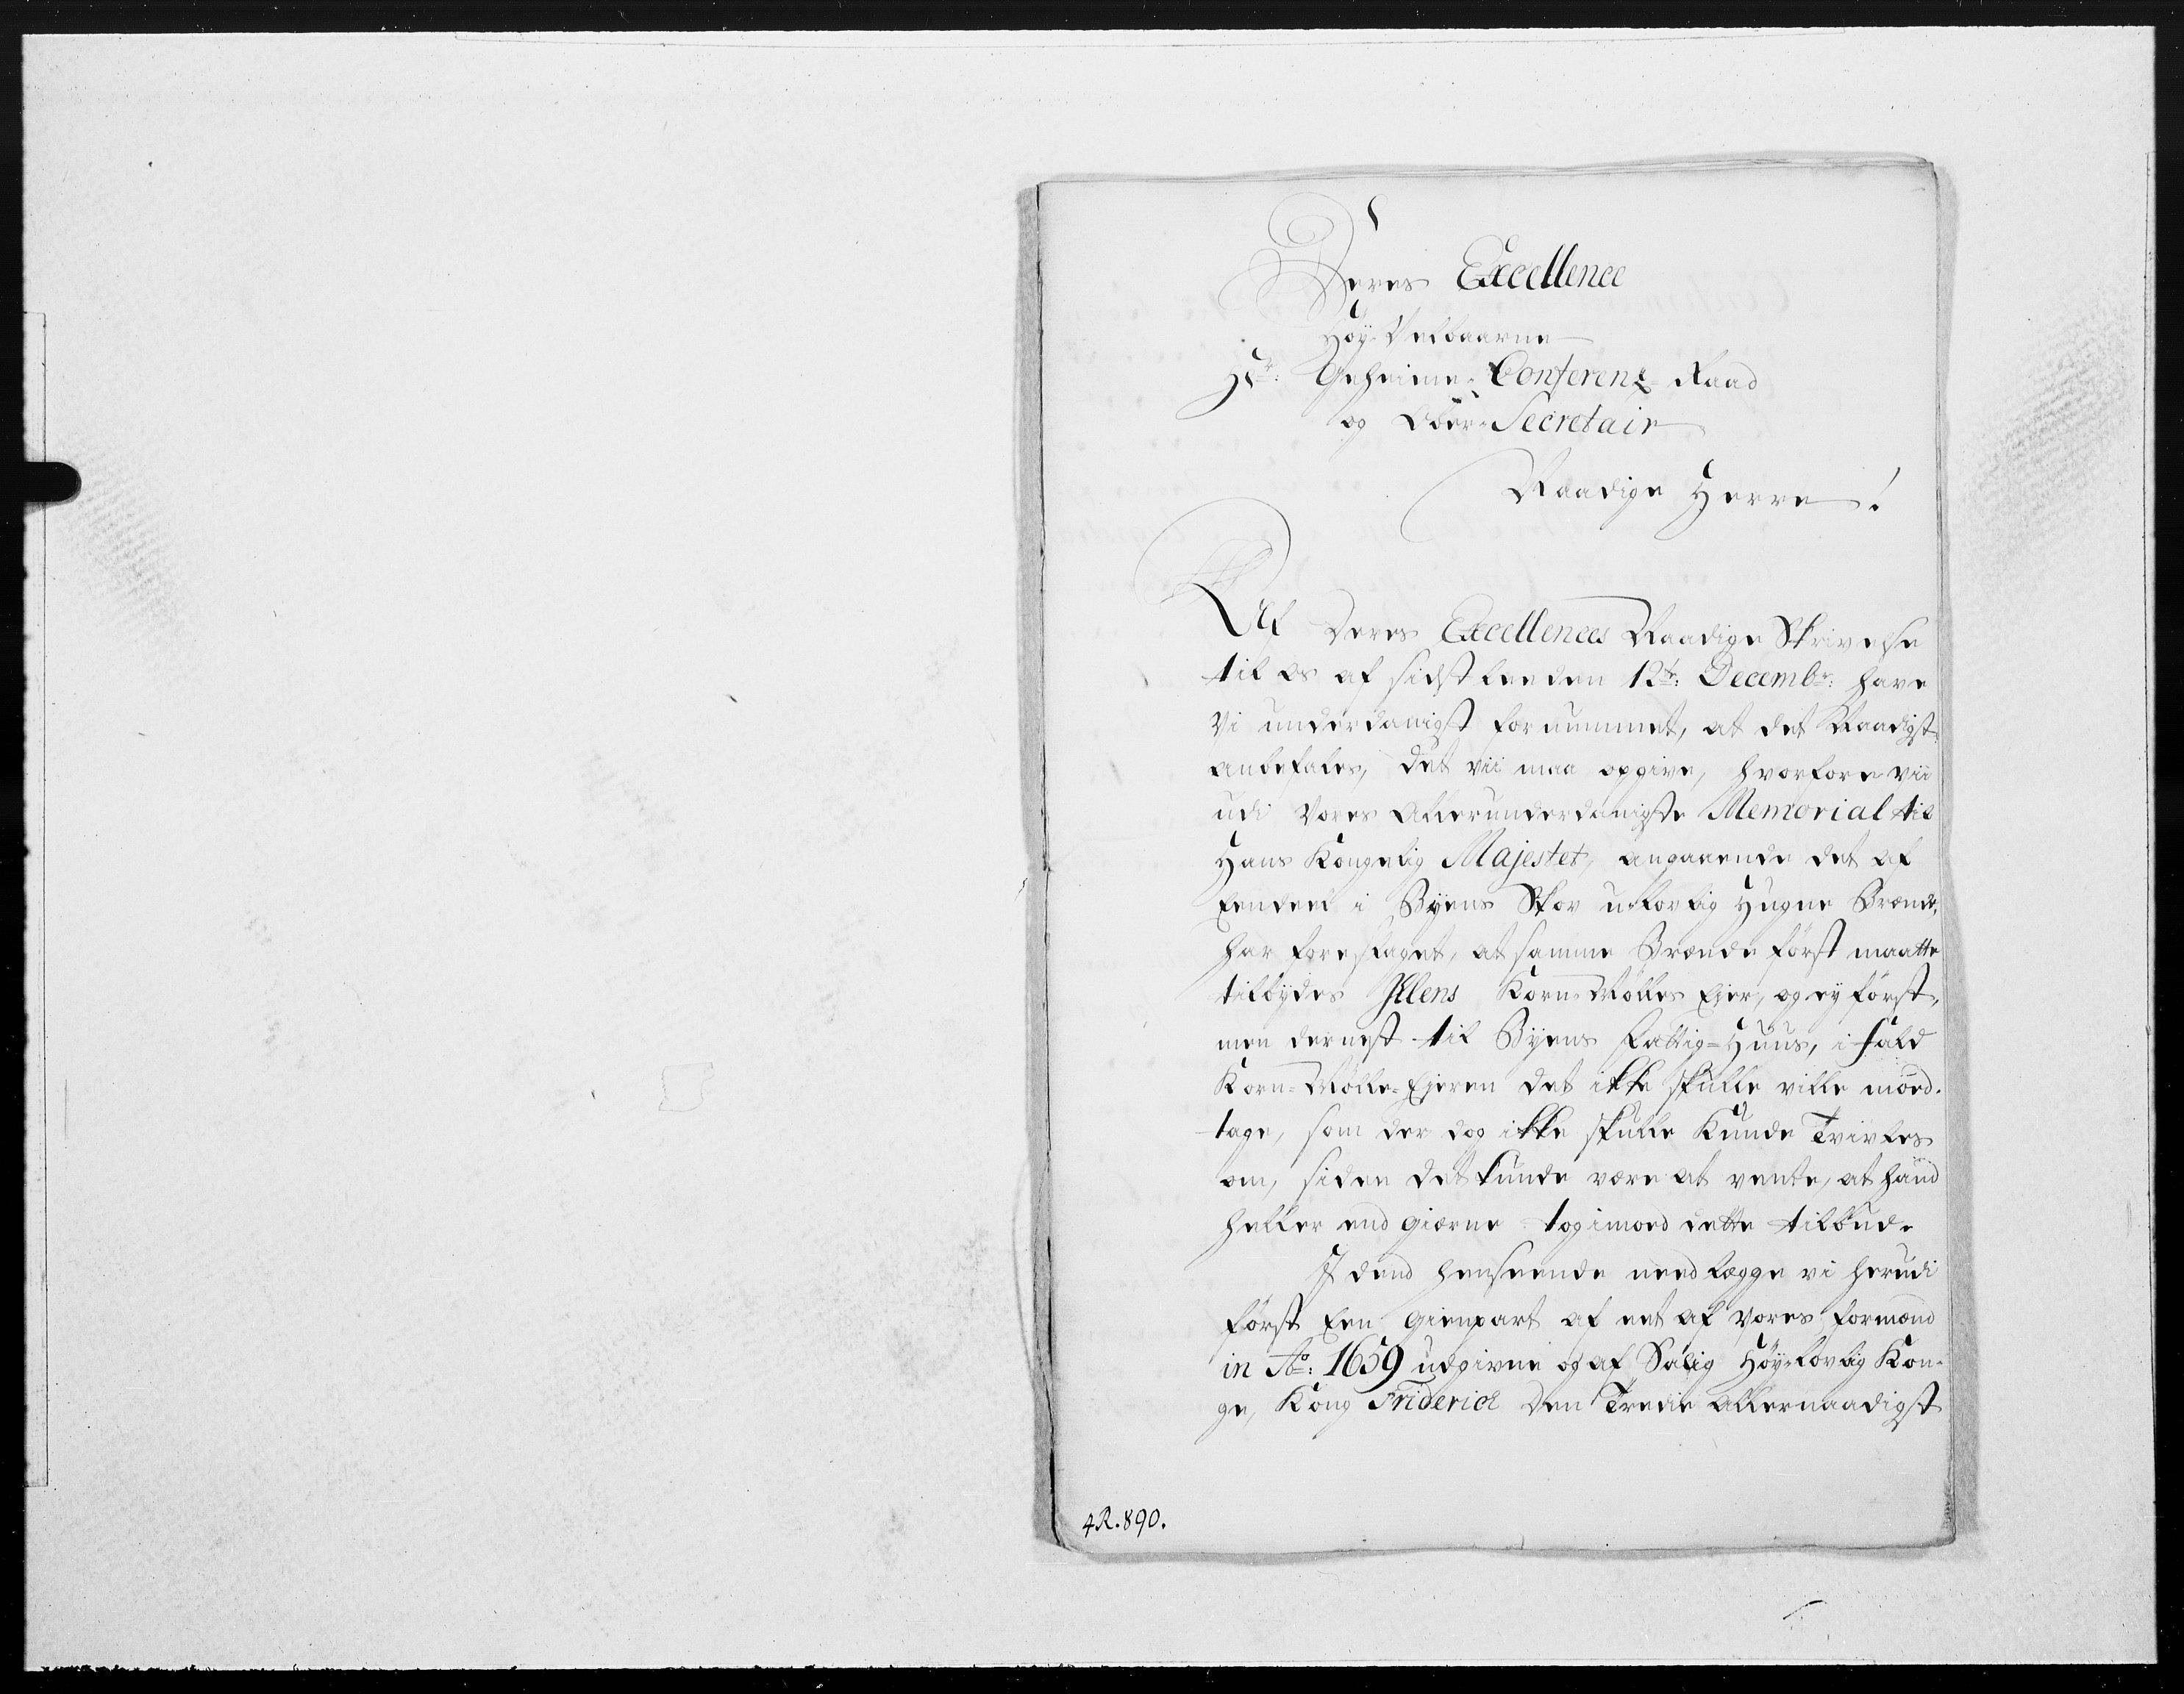 Deres Excellence
Høy-Velbaarne
Hr: Geheime-Conferenz-Raad
og Ober-Secretair
Naadige Herre!
Af Deres Excellences Naadige Skrivelse
til os af sidstleeden 12te: Decembr: have
Vi underdanigst fornummet, at det Naadigst
anbefales, det vii maa opgive, hvorfore vii
udi Vores Allerunderdanigste Memorial til
Hans Kongelig Majestet, angaaende det af
Eendeel i Byens Skov ulovlig Hugne Brænde,
har foreslaget, at samme Brænde först maatte
tilbydes Illens Korn-Mölles Ejer, og ey först,
men dernest til Byens Fattig-Huus, i fald
Korn-Mölle-Ejeren det ikke skulle ville mod-
tage, som der dog ikke skulle kunde Tvivles
om, siden det kunde være at vente, at hand
heller end gierne tog imod dette tilbud.
I dend henseende needlegge vi herudi
först Een Gienpart af eet af Vores Formænd
in Ao: 1659 udgivne og af Salig Höy-lovlig Kon-
ge, Kong Friderich Den Tredie Allernaadigst
4R.890.